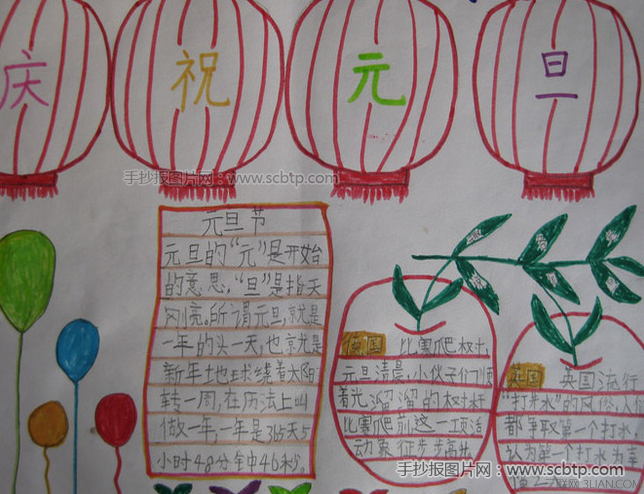 庆祝元旦
手抄报图片网：www.scbtp.com
元旦节
元旦的“元”是开始
的意思，“旦”是指天
刚亮。所谓元旦，就是
一年的头一天，也就是
新年地球绕着太阳
转一周，在历法上叫
做一年，一年是365天5
小时48分钟46秒。
德国 比赛爬树
元旦清晨，小伙子们顺
着光溜溜的树杆
比赛爬前这一项活
动象征步步高升
英国 英国流行
“打井水”的风俗，人们
都争取第一个打水
认为第一个打水为幸
手抄报图片网：www.scbtp.com
3LIAN.COM